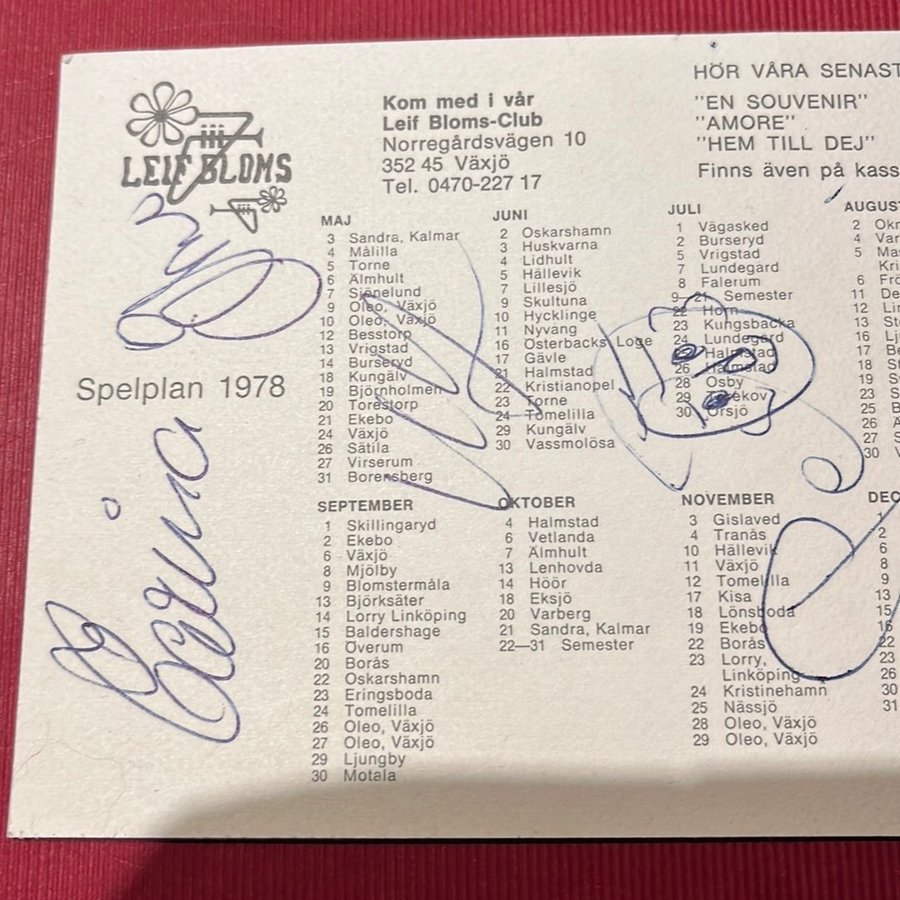 LEIF BLOMS
Kom med i vår
Leif Bloms-Club
Norregårdsvägen 10
352 45 Växjö
Tel. 0470-227 17
HÖR VÅRA SENAST
"EN SOUVENIR"
"AMORE"
"HEM TILL DEJ"
Finns även på kass
Spelplan 1978
Carina
MAJ
3 Sandra, Kalmar
4 Målilla
5 Torne
6 Älmhult
7 Sjönelund
9 Oleo, Växjö
10 Oleo, Växjö
12 Besstorp
13 Vrigstad
14 Burseryd
18 Kungälv
19 Björnholmen
20 Torestorp
21 Ekebo
24 Växjö
26 Sätila
27 Virserum
31 Borensberg
JUNI
2 Oskarshamn
3 Huskvarna
4 Lidhult
5 Hällevik
7 Lillesjö
9 Skultuna
10 Hycklinge
11 Nyvång
16 Österbacks Loge
17 Gävle
21 Halmstad
22 Kristianopel
23 Torne
24 Tomelilla
29 Kungälv
30 Vassmolösa
JULI
1 Vägasked
2 Burseryd
5 Vrigstad
7 Lundegard
8 Falerum
9—21 Semester
22 Horn
23 Kungsbacka
24 Lundegard
25 Halmstad
26 Halmstad
28 Osby
29
30 Orsjö
AUGUST
2 Okn
4 Var
5 Mas
Kri
6 Frö
11 De
12 Lin
13 Stö
16 Lju
17 Be
18 St
19 Sv
23 S
25 B
26
27 S
30 V
SEPTEMBER
1 Skillingaryd
2 Ekebo
6 Växjö
8 Mjölby
9 Blomstermåla
13 Björksäter
14 Lorry Linköping
15 Baldershage
16 Överum
20 Borås
22 Oskarshamn
23 Eringsboda
24 Tomelilla
26 Oleo, Växjö
27 Oleo, Växjö
29 Ljungby
30 Motala
OKTOBER
4 Halmstad
6 Vetlanda
7 Älmhult
13 Lenhovda
14 Höör
18 Eksjö
20 Varberg
21 Sandra, Kalmar
22—31 Semester
NOVEMBER
3 Gislaved
4 Tranås
10 Hällevik
11 Växjö
12 Tomelilla
17 Kisa
18 Lönsboda
19 Ekebo
22 Borås
23 Lorry,
Linköping
24 Kristinehamn
25 Nässjö
28 Oleo, Växjö
29 Oleo, Växjö
DEC
1
2
6
8
9
13
15
16
22
23
26
30
31